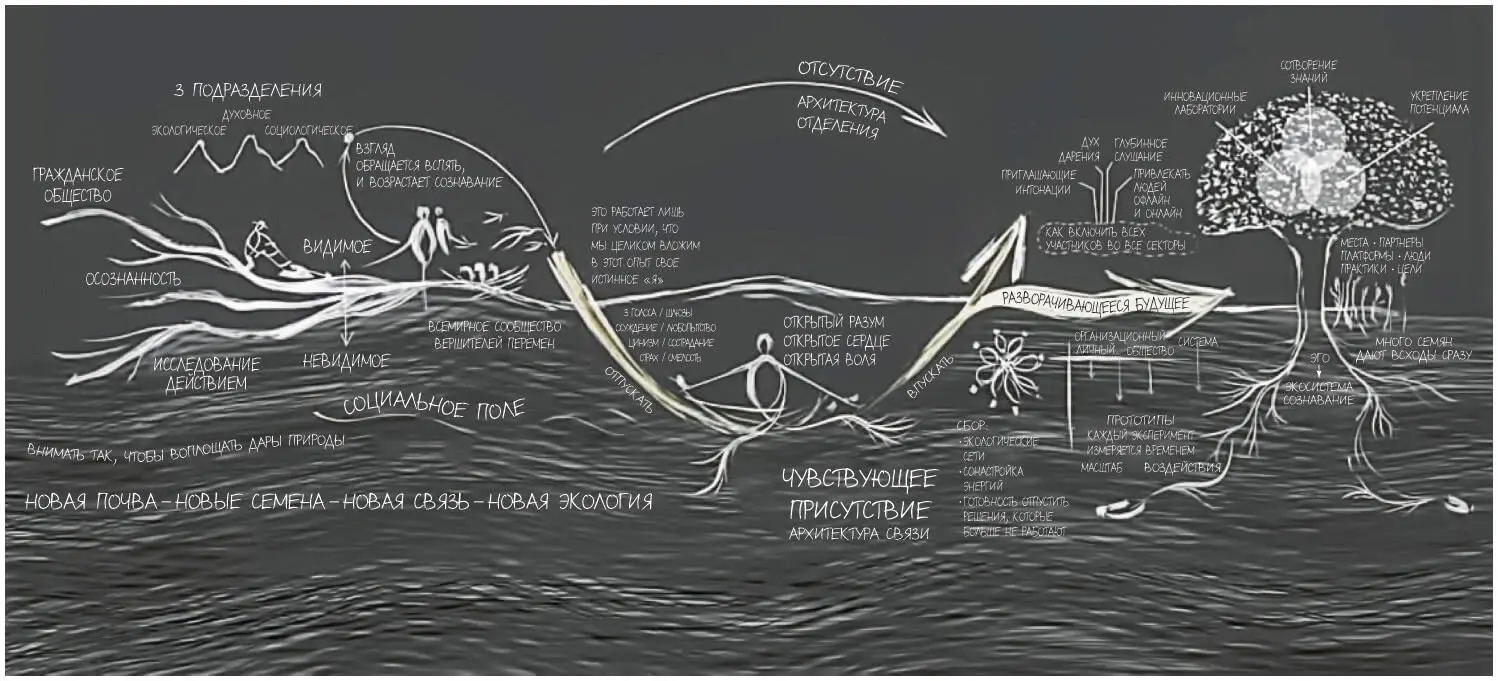 3 ПОДРАЗДЕЛЕНИЯ
ДУХОВНОЕ
ЭКОЛОГИЧЕСКОЕ
СОЦИОЛОГИЧЕСКОЕ
ВЗГЛЯД
ОБРАЩАЕТСЯ ВСПЯТЬ,
И ВОЗРАСТАЕТ СОЗНАВАНИЕ
ГРАЖДАНСКОЕ
ОБЩЕСТВО
ВИДИМОЕ
ОСОЗНАННОСТЬ
НЕВИДИМОЕ
ИССЛЕДОВАНИЕ
ДЕЙСТВИЕМ
ВСЕМИРНОЕ СООБЩЕСТВО
ВЕРШИТЕЛЕЙ ПЕРЕМЕН
СОЦИАЛЬНОЕ ПОЛЕ
ВНИМАТЬ ТАК, ЧТОБЫ ВОПЛОЩАТЬ ДАРЫ ПРИРОДЫ
НОВАЯ ПОЧВА – НОВЫЕ СЕМЕНА – НОВАЯ СВЯЗЬ – НОВАЯ ЭКОЛОГИЯ
ОТСУТСТВИЕ
АРХИТЕКТУРА
ОТДЕЛЕНИЯ
ЭТО РАБОТАЕТ ЛИШЬ
ПРИ УСЛОВИИ, ЧТО
МЫ ЦЕЛИКОМ ВЛОЖИМ
В ЭТОТ ОПЫТ СВОЕ
ИСТИННОЕ «Я»
3 ГОЛОСА / ШЛЮЗЫ
ОСУЖДЕНИЕ / ЛЮБОПЫТСТВО
ЦИНИЗМ / СОСТРАДАНИЕ
СТРАХ / СМЕЛОСТЬ
ОТПУСКАТЬ
ОТКРЫТЫЙ РАЗУМ
ОТКРЫТОЕ СЕРДЦЕ
ОТКРЫТАЯ ВОЛЯ
ВПУСКАТЬ
ЧУВСТВУЮЩЕЕ
ПРИСУТСТВИЕ
АРХИТЕКТУРА СВЯЗИ
ДУХ
ДАРЕНИЯ
ГЛУБИННОЕ
СЛУШАНИЕ
ПРИГЛАШАЮЩИЕ
ИНТОНАЦИИ
ПРИВЛЕКАТЬ
ЛЮДЕЙ
ОФЛАЙН
И ОНЛАЙН
КАК ВКЛЮЧИТЬ ВСЕХ
УЧАСТНИКОВ ВО ВСЕ СЕКТОРЫ
РАЗВОРАЧИВАЮЩЕЕСЯ БУДУЩЕЕ
ОРГАНИЗАЦИОННЫЙ
ЛИЧНЫЙ
ОБЩЕСТВО
СИСТЕМА
СБОР:
• ЭКОЛОГИЧЕСКИЕ
СЕТИ
• СОНАСТРОЙКА
ЭНЕРГИЙ
• ГОТОВНОСТЬ ОТПУСТИТЬ
РЕШЕНИЯ, КОТОРЫЕ
БОЛЬШЕ НЕ РАБОТАЮТ
ПРОТОТИПЫ
КАЖДЫЙ ЭКСПЕРИМЕНТ
ИЗМЕРЯЕТСЯ ВРЕМЕНЕМ
МАСШТАБ ВОЗДЕЙСТВИЯ
СОТВОРЕНИЕ
ЗНАНИЙ
ИННОВАЦИОННЫЕ
ЛАБОРАТОРИИ
УКРЕПЛЕНИЕ
ПОТЕНЦИАЛА
МЕСТА • ПАРТНЕРЫ
ПЛАТФОРМЫ • ЛЮДИ
ПРАКТИКИ • ЦЕЛИ
МНОГО СЕМЯН
ДАЮТ ВСХОДЫ СРАЗУ
ЭГО
ЭКОСИСТЕМА
СОЗНАВАНИЕ